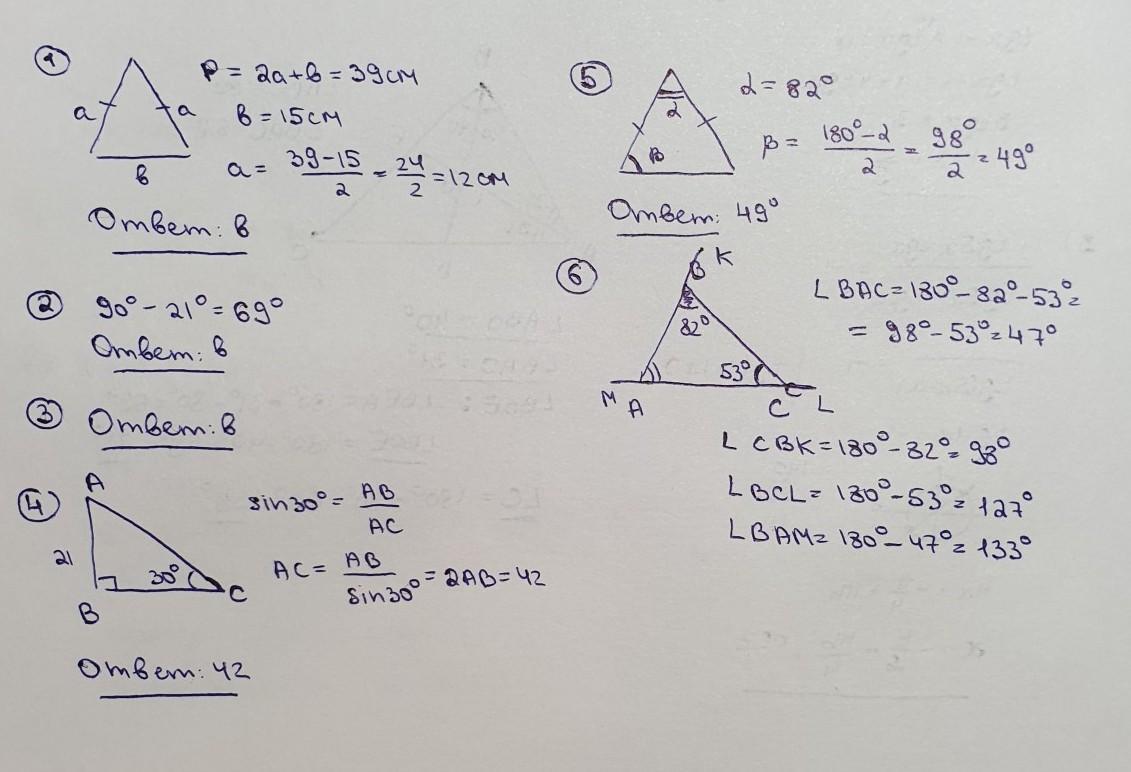 1
P = 2a+b = 39 см
a a
b = 15 см
b
a = 39-15/2 = 24/2 = 12 см
Ответ: в
2 90° - 21° = 69°
Ответ: в
3 Ответ: в
4
A
21
B
30°
C
sin30° = AB/AC
AC = AB/sin30° = 2AB = 42
Ответ: 42
5
α
β
α = 82°
β = 180°-α/2 = 98°/2 = 49°
Ответ: 49°
6
B K
82°
53°
M A C L
∠BAC = 180° - 82° - 53° =
= 98° - 53° = 47°
∠CBK = 180° - 82° = 98°
∠BCL = 180° - 53° = 127°
∠BAM = 180° - 47° = 133°